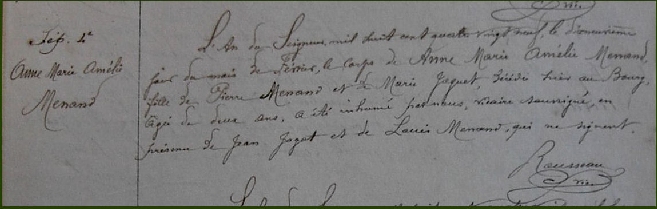 Sép. 4e
Anne Marie Amélie
Menand
L'An du Seigneur, mil huit cent quatre vingt neuf, le dixneuvième
jour du mois de Février, le corps de Anne Marie Amélie Menand,
fille de Pierre Menand et de Marie Jaguet, décédée hier au Bourg,
âgée de deux ans, a été inhumé par nous, vicaire soussigné, en
présence de Jean Jaguet et de Louis Menand, qui ne signent.
Rousseau
vic.